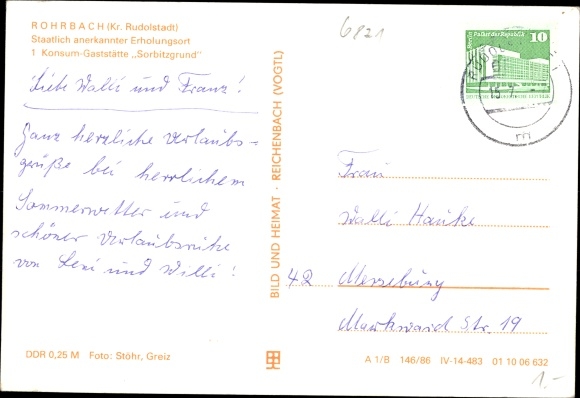 6821
ROHRBACH (Kr. Rudolstadt)
Staatlich anerkannter Erholungsort
1 Konsum-Gaststätte „Sorbitzgrund"
Liebe Walli und Franz!
Ganz herzliche Urlaubs-
grüße bei herrlichem
Sommerwetter und
schöner Urlaubsruhe
von Leni und Willi!
DDR 0,25 M Foto: Stöhr, Greiz
BILD UND HEIMAT · REICHENBACH (VOGTL)
Palast der Republik
10
Frau
Walli Hauke
42 Merseburg
Markward Str. 19
A 1/B 146/86 IV-14-483 01 10 06 632
1.-